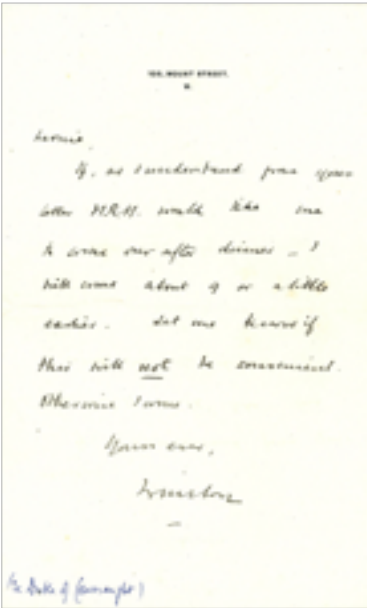 105, MOUNT STREET,
W.
Leonie,
If, as I understand from your
letter H.R.H. would like me
to come over after dinner – I
will come about 9 or a little
earlier. Let me know if
this will not be convenient.
Otherwise I come.
Yours ever,
Winston
(The Duke of Connaught)